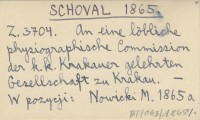 SCHOVAL 1865.
Z.3704. An eine löbliche
physiographische Commission
der k.k. Krakauer gelehrten
Gesellschaft zu Krakau. —
W pozycji: Nowicki M. 1865a